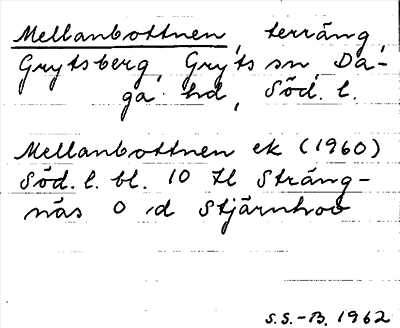 Mellanbottnen, terräng,
Grytsberg, Gryts sn, Da-
ga hd, Söd. l.
Mellanbottnen ek (1960)
Söd. l. bl. 10 tl Sträng-
näs O /d Stjärnhov
S.S.-B. 1962